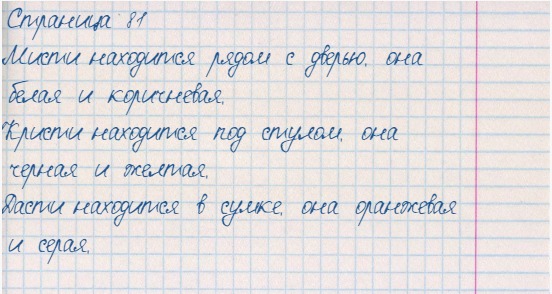 Страница 81
Мисти находится рядом с дверью, она
белая и коричневая.
Кристи находится под стулом, она
черная и желтая.
Дасти находится в сумке, она оранжевая
и серая.